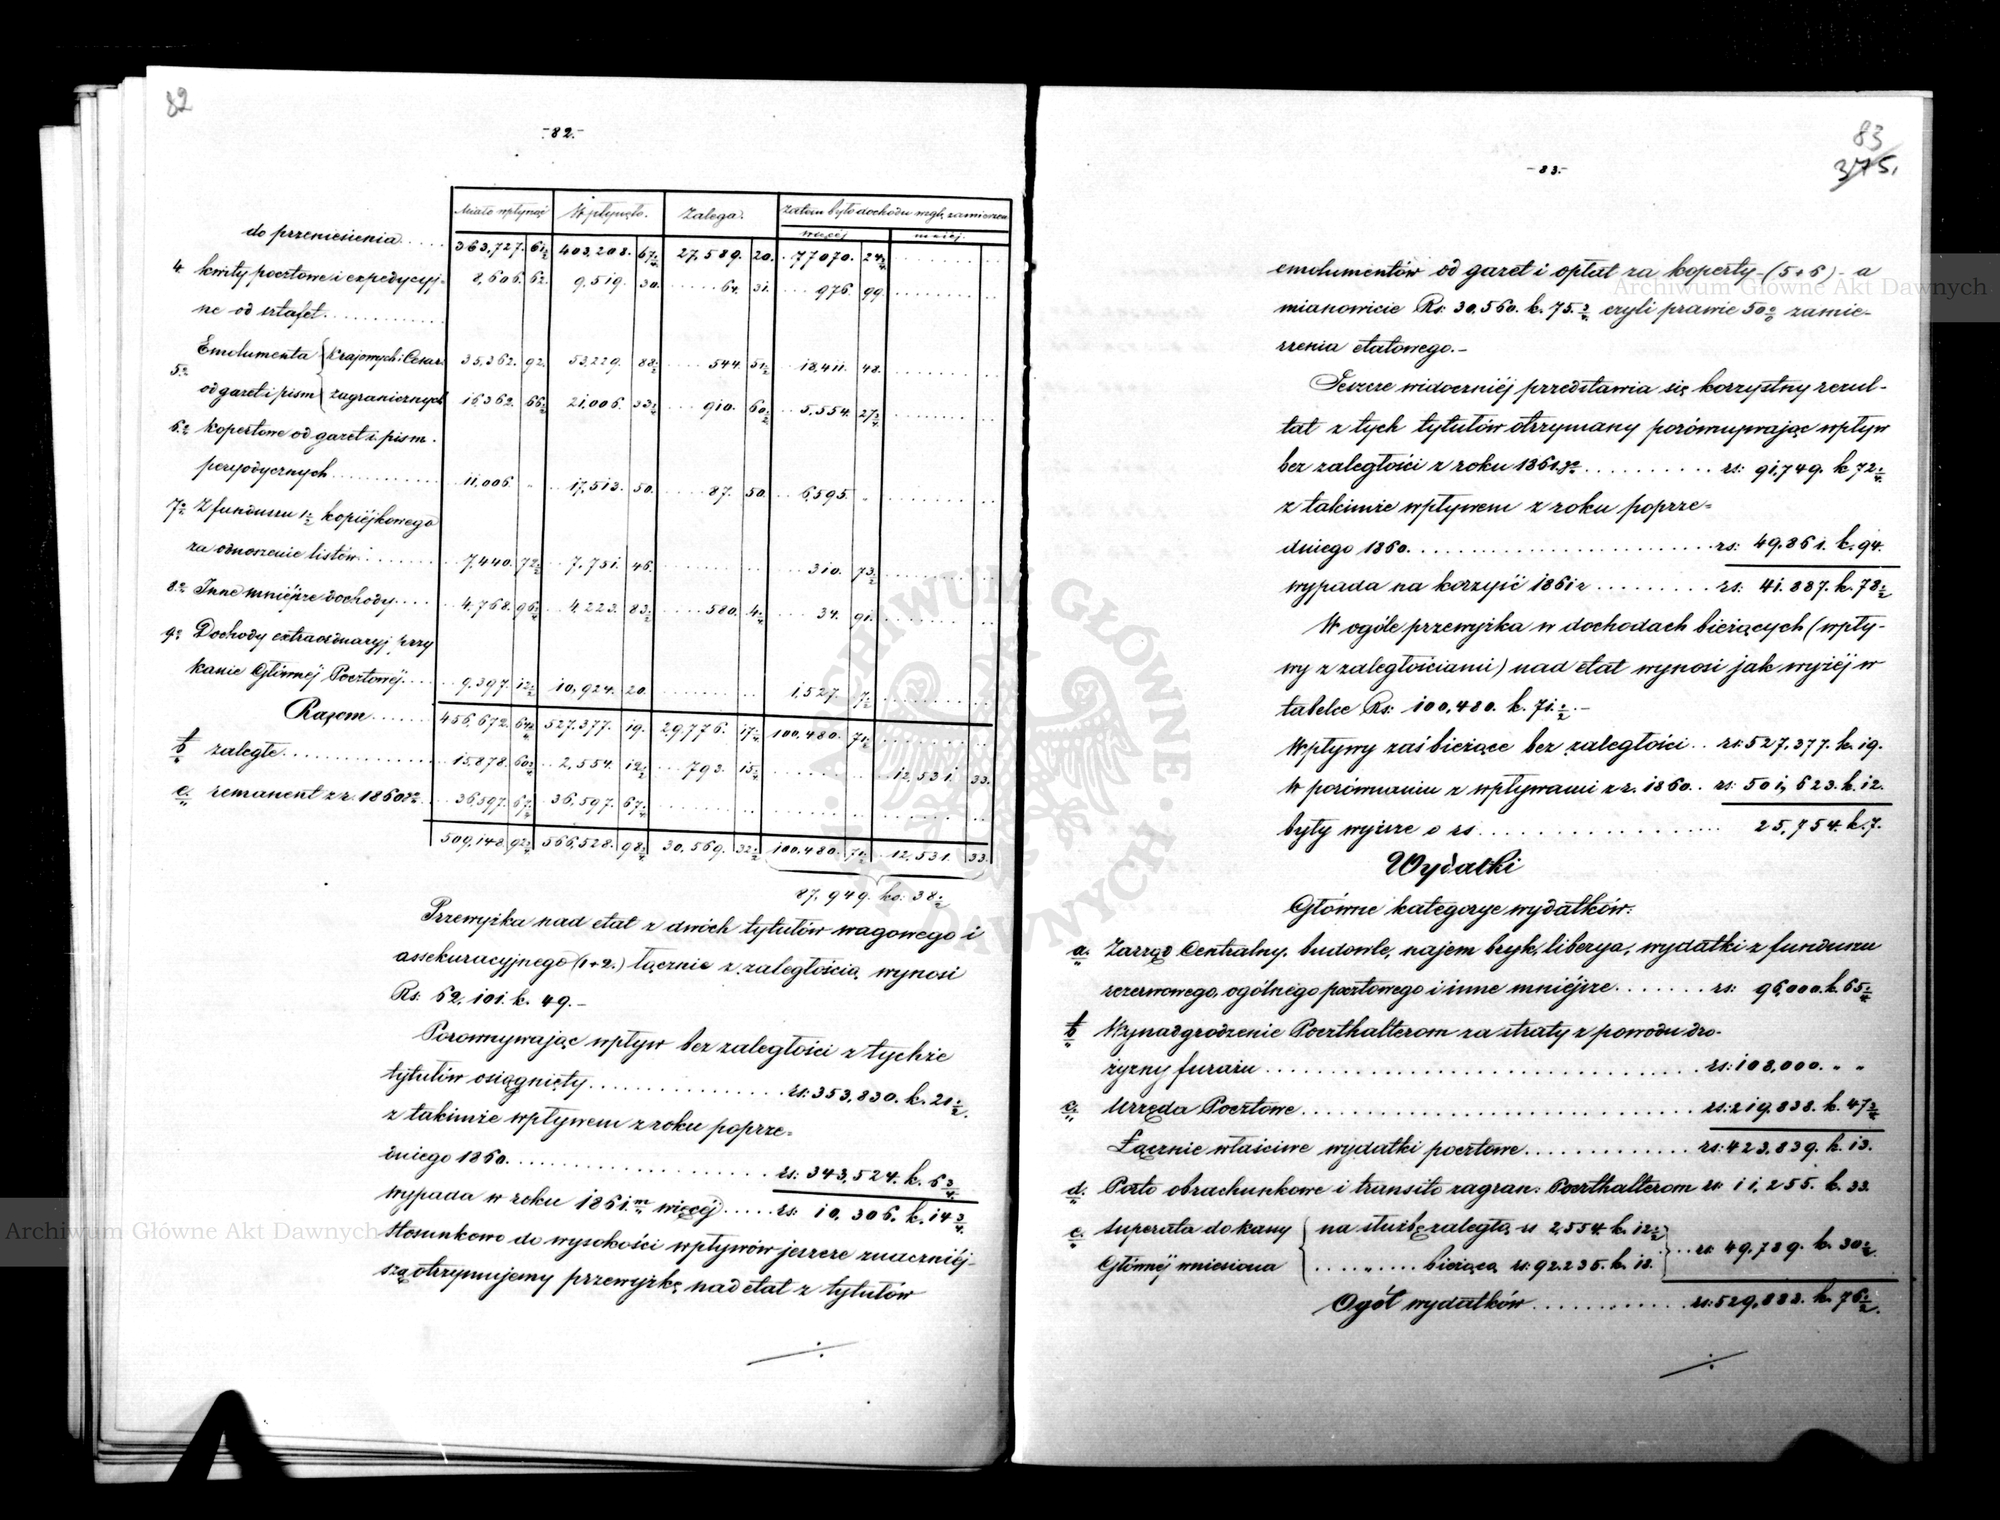 82
-82.-
Miało wpłynąć Wpłynęło. Zalega. Zatem było dochodu wzgl. zamierzon
więcej mniej.
do przeniesienia..... 363,727. 61½ 403,208. 67¾ 27,589. 20. 77070. 24¾
4. kwity pocztowe i expedycyj= 8,606. 62. 9,519. 30. 64. 31. 976. 99.
ne od sztafet.
Emolumenta krajowych i Cesar. 35,362. 92. 53,229. 88½ 544. 51½ 18,411. 48.
5.
od gazet i pism zagranicznych 16362. 66½ 21,006. 33½ 910. 60½ 5,554. 27¾
6. kopertowe od gazet i pism.
peryodycznych 11,006. „ 17,513. 50. 87. 50. 6,595. „
7. Z funduszu 1. kopiéjkowego
za odnoszenie listów 7,440. 72½ 7,751. 46. 310. 73½
8. Inne mniéjsze dochody 4,768. 96½ 4,223. 83½ 580. 4½ 34. 91.
9. Dochody extraordynaryj. przy
kasie Głównéj Pocztowéj 9,397. 12½ 10,924. 20. 1,527. 7½
Razem 456,672. 64¼ 527,377. 19. 29,776. 17¼ 100,480. 71½
b zaległe 15878. 60¾ 2,554. 12½ 793. 15¼ 12,531. 33.
c. remanent z r. 1860 36,597. 67¼ 36,597. 67¼
509,148. 92¾ 566,528. 98¾ 30,569. 32½ 100,480. 71½ 12,531. 33.
87,949. ko: 38½
Przewyżka nad etat z dwóch tytułów wagowego i
assekuracyjnego (1+2.) łącznie z zaległością wynosi
Rs: 62,101. k. 49.-
Porownywając wpływ bez zaległości z tychże
tytułów osiągnięty rs: 353,830. k. 21½.
z takimże wpływem z roku poprze=
dniego 1860. rs: 343,524. k. 6¾
wypada w roku 1861.m więcéj rs: 10,306. k. 14¾
Stosunkowo do wysokości wpływów jeszcze znaczniéj-
szą otrzymujemy przewyżkę nad etat z tytułów
83
375.
-83.-
emolumentów od gazet i opłat za koperty-(5+6)- a
mianowicie Rs: 30,560. k. 75¾ czyli prawie 50% zamie-
rzenia etatowego.-
Jeszcze widoczniéj przedstawia się korzystny rezul-
tat z tych tytułów otrzymany porównywając wpływ
bez zaległości z roku 1861 rs: 91,749. k. 72¼
z takimże wpływem z roku poprze=
dniego 1860. rs: 49,861. k. 94.
wypada na korzyść 1861 r rs: 41.887. k. 78½
W ogóle przewyżka w dochodach bieżących (wpły-
wy z zaległościami) nad etat wynosi jak wyżéj w
tabelce Rs: 100,480. k. 71½.-
Wpływy zaś bieżące bez zaległości.. rs: 527,377. k. 19.
W porównaniu z wpływami z r. 1860.. rs: 501,623. k. 12.
były wyższe o rs 25,754. k. 7.
Wydatki
Główne kategorye wydatków:
a. Zarząd Centralny, budowle, najem bryk, liberya, wydatki z funduszu
rezerwowego, ogólnego pocztowego i inne mniéjsze rs: 96,000. k. 65¼
b Wynadgrodzenie Poczthalterom za straty z powodu dro-
żyzny furażu rs: 108,000. „ „
c. Urzęda Pocztowe rs: 219,838. k. 47¾
Łącznie właściwe wydatki pocztowe rs: 423,839. k. 13.
d. Porto obrachunkowe i transito zagran: Poczthalterom rs 11,255. k. 33.
e. Superata do kassy na służbę zaległą rs 2,554. k. 12½ rs: 49,789. k. 30½
Głównéj wniesiona „ bieżącą rs: 92.235. k. 18.
Ogół wydatków rs: 529,883. k. 76½.
Archiwum Główne Akt Dawnych
Archiwum Główne Akt Dawnych
ARCHIWUM GŁÓWNE AKT DAWNYCH